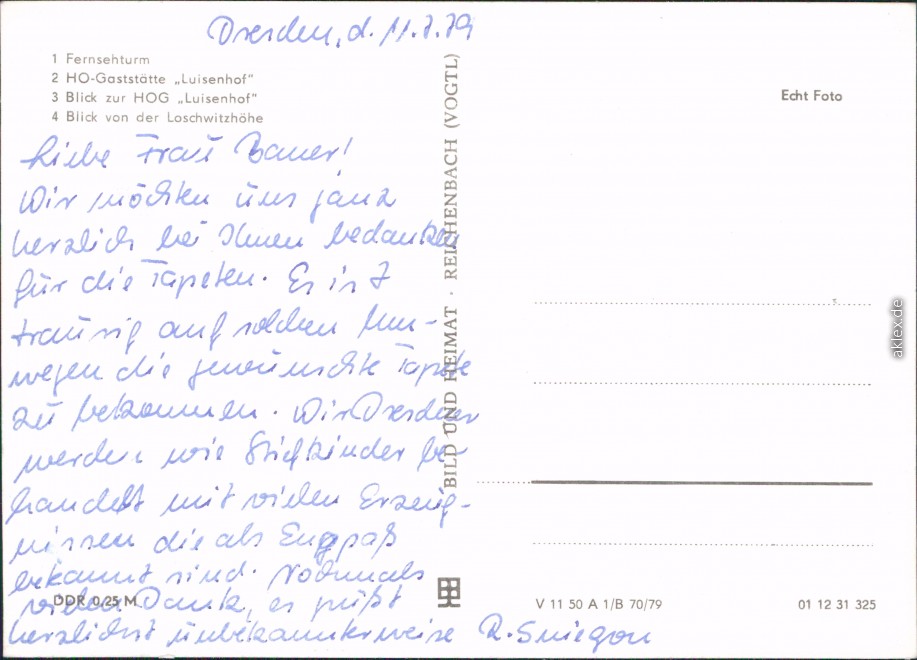 Dresden, d. 11.7.79
1 Fernsehturm
2 HO-Gaststätte „Luisenhof"
3 Blick zur HOG „Luisenhof"
4 Blick von der Loschwitzhöhe
Liebe Frau Bauer!
Wir möchten uns ganz
herzlich bei Ihnen bedanken
für die Tapeten. Es ist
traurig auf solchen Um-
wegen die gewünschte Tapete
zu bekommen. Wir Dresdner
werden wie Stiefkinder be-
handelt mit vielen Erzeug-
nissen die als Engpaß
bekannt sind. Nochmals
vielen Dank, es grüßt
herzlichst unbekannterweise R. Sniegon
DDR 0,25 M
BILD UND HEIMAT · REICHENBACH (VOGTL)
Echt Foto
V 11 50 A 1/B 70/79
01 12 31 325
aklex.de